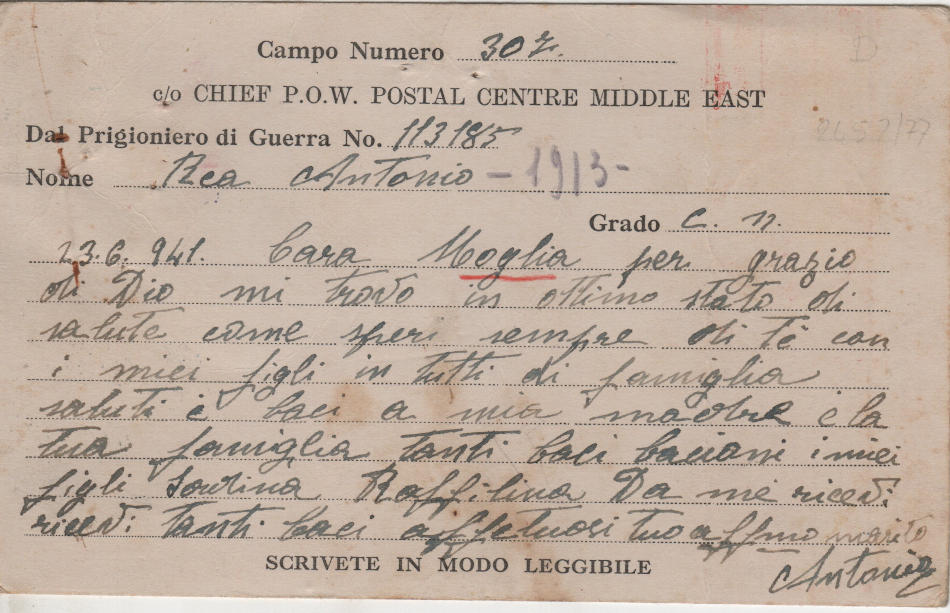 Campo Numero 307.
D
c/o CHIEF P.O.W. POSTAL CENTRE MIDDLE EAST
Dal Prigioniero di Guerra No. 113185
2452/77
Nome Rea Antonio - 1913-
Grado C. n.
23.6.941. Cara Moglia per grazio
di Dio mi trovo in ottimo stato di
salute come speri sempre di te con
i miei figli in tutti di famiglia
saluti è baci a mia madre è la
tua famiglia tanti baci baciami i miei
figli Raffilina Da me ricevi
ricevi tanti baci affetuosi tuo affmo marito
SCRIVETE IN MODO LEGGIBILE
Antonio